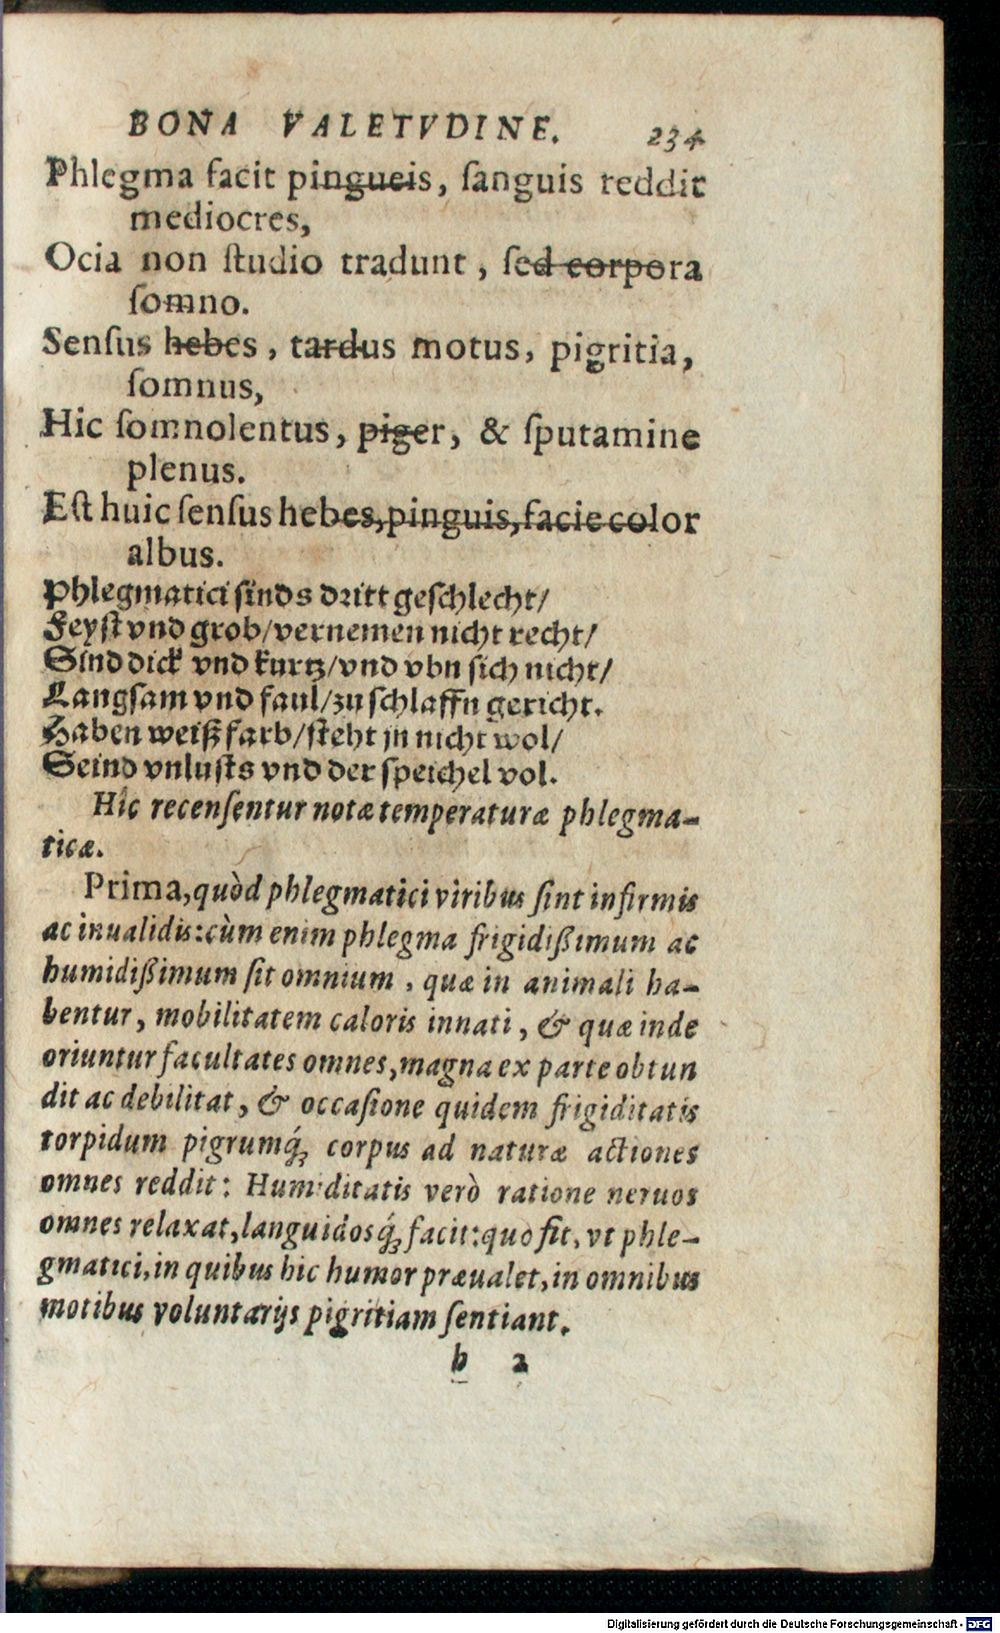 BONA VALETVDINE. 234
Phlegma facit pingueis, ſanguis reddit
mediocres,
Ocia non ſtudio tradunt, ſed corpora
ſomno.
Senſus hebes, tardus motus, pigritia,
ſomnus,
Hic ſomnolentus, piger, & ſputamine
plenus.
Eſt huic ſenſus hebes, pinguis, facie color
albus.
Phlegmatici ſinds dritt geſchlecht/
Feyſt vnd grob/vernemen nicht recht/
Sind dick vnd kurtz/vnd vbn ſich nicht/
Langſam vnd faul/zu ſchlaffn gericht.
Haben weiß farb/ſteht jn nicht wol/
Seind vnluſts vnd der ſpeichel vol.
Hic recenſentur notæ temperaturæ phlegma-
ticæ.
Prima, quòd phlegmatici viribus ſint infirmis
ac inualidis: cùm enim phlegma frigidißimum ac
humidißimum ſit omnium, quæ in animali ha-
bentur, mobilitatem caloris innati, & quæ inde
oriuntur facultates omnes, magna ex parte obtun
dit ac debilitat, & occaſione quidem frigiditatis
torpidum pigrumq́; corpus ad naturæ actiones
omnes reddit: Humiditatis verò ratione neruos
omnes relaxat, languidosq́; facit: quo fit, vt phle-
gmatici, in quibus hic humor præualet, in omnibus
motibus voluntarijs pigritiam ſentiant.
b 2
Digitalisierung gefördert durch die Deutsche Forschungsgemeinschaft - DFG